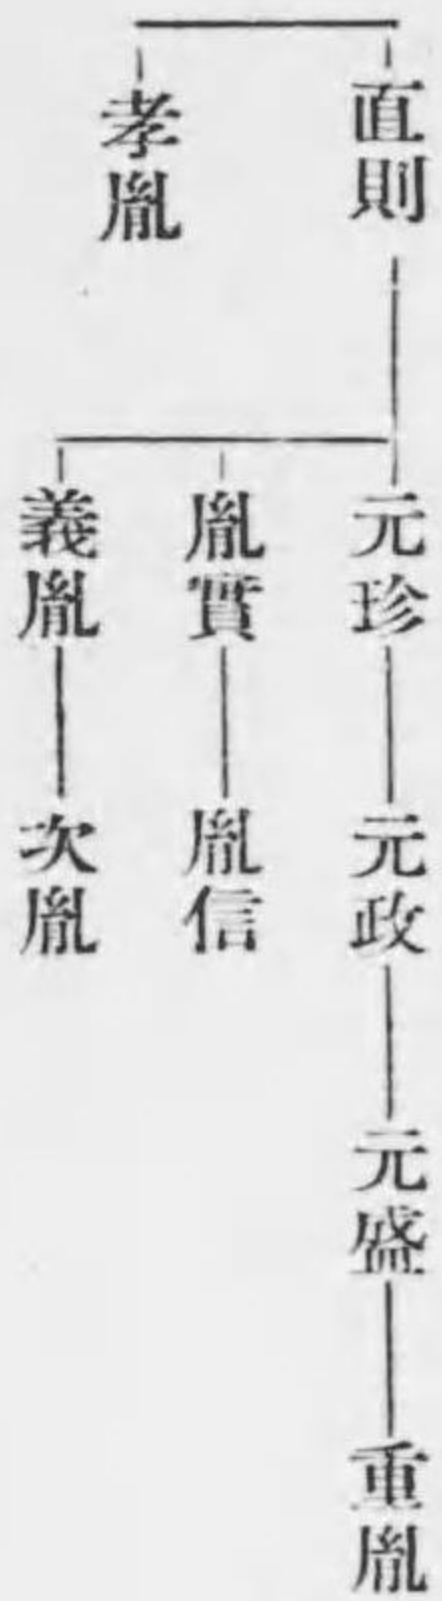 直則
元珍
元政
元盛
重胤
胤實
胤信
義胤
次胤
孝胤